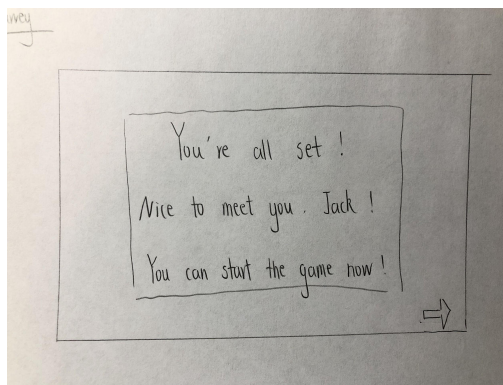 You're all set !
Nice to meet you . Jack !
You can start the game now !